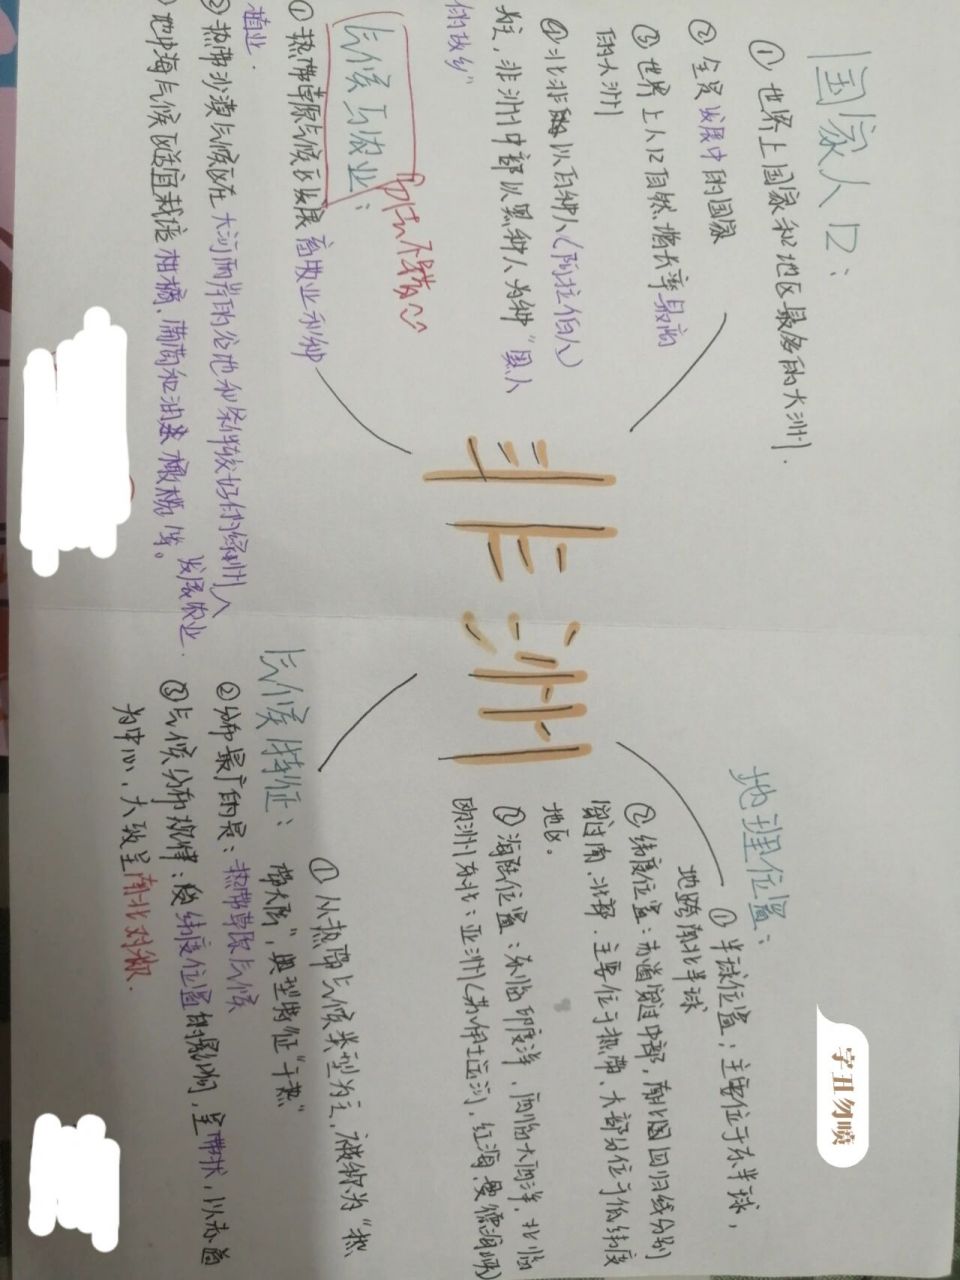 国家人口：
① 世界上国家和地区最多的大洲．
② 全是发展中的国家
③ 世界上人口自然增长率最高
的大洲
④ 北非以白种人(阿拉伯人)
为主，非洲中部以黑种人为种 "黑人
的故乡"
气候与农业：
布局不错
① 热带草原气候区发展 畜牧业和种
植业．
② 热带沙漠气候区在 大河两岸的谷地和条件较好的绿洲
发展农业．
地中海气候区适宜栽培 柑橘、葡萄和油橄榄等。
非洲
地理位置：
① 半球位置：主要位于东半球，
地跨南北半球
② 纬度位置：赤道穿过中部，南北回归线分别
穿过南、北部．主要位于热带、大部分位于低纬度
地区。
② 海陆位置：东临印度洋，西临大西洋，北临
欧洲 东北：亚洲(苏伊士运河，红海 曼德海峡)
气候特征：
① 从热带气候类型为主，被称为 "热
带大陆"，典型特征 "干热"
② 分布最广的是：热带草原气候
③ 气候分布规律：受 纬度位置 的影响，呈带状，以赤道
为中心、大致呈 南北对称．
字丑勿喷